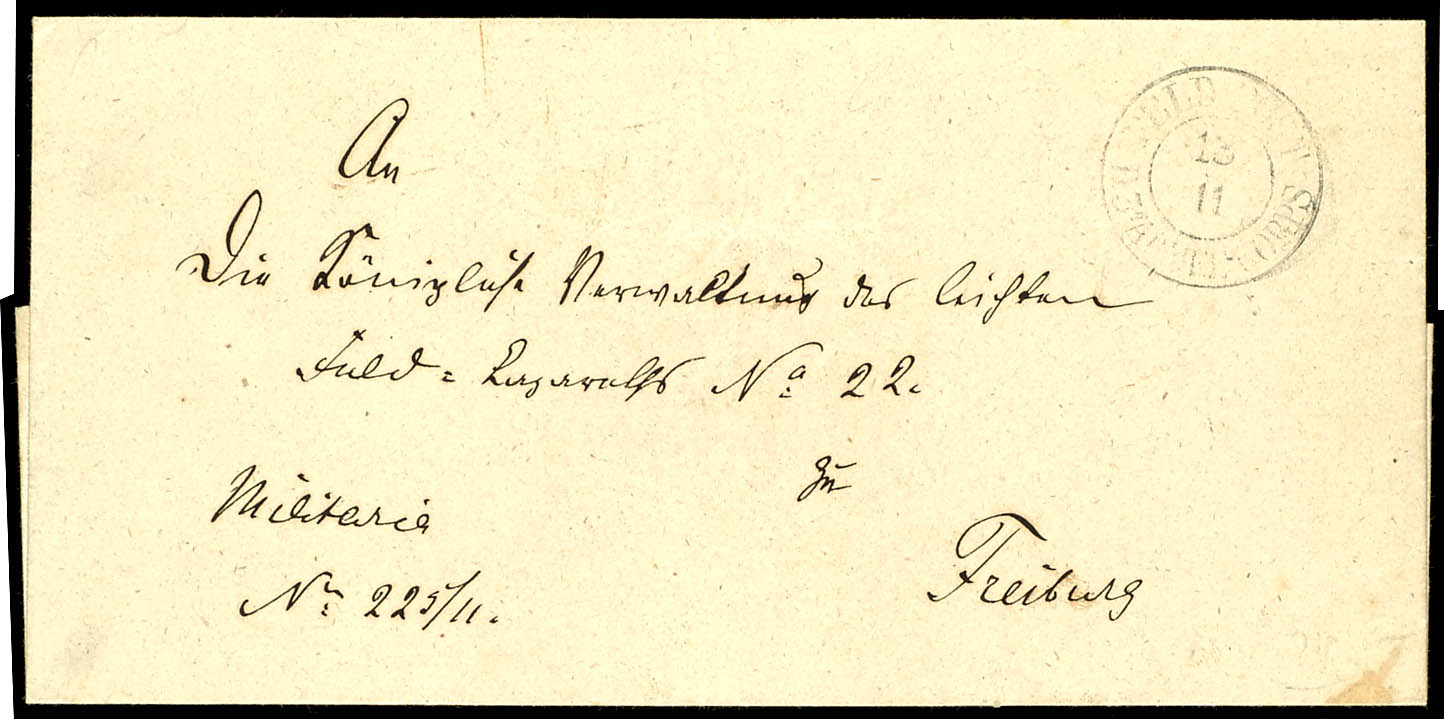 FELD-POST
13
11
II. ARMEE-CORPS
An
Die Königliche Verwaltung des leichten
Feld-Lazareths No 22.
zu
Militaria
Nr. 225/11.
Freiburg